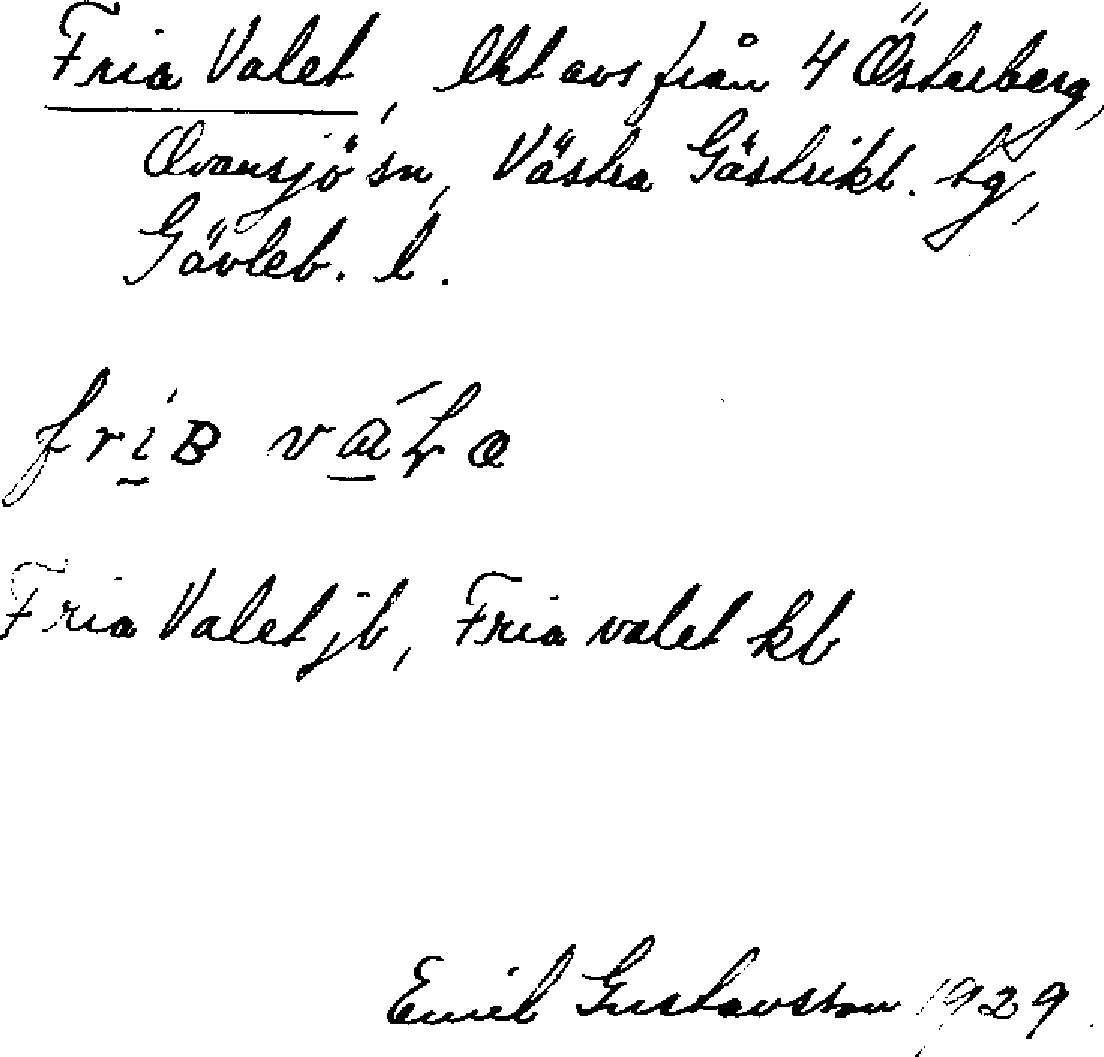 Fria Valet, lht avs från 4 Österberg,
Ovansjö sn, Västra Gästrikl. tg,
Gävleb. l.
Fria Valet jb, Fria valet kb
Emil Gustavsson 1929